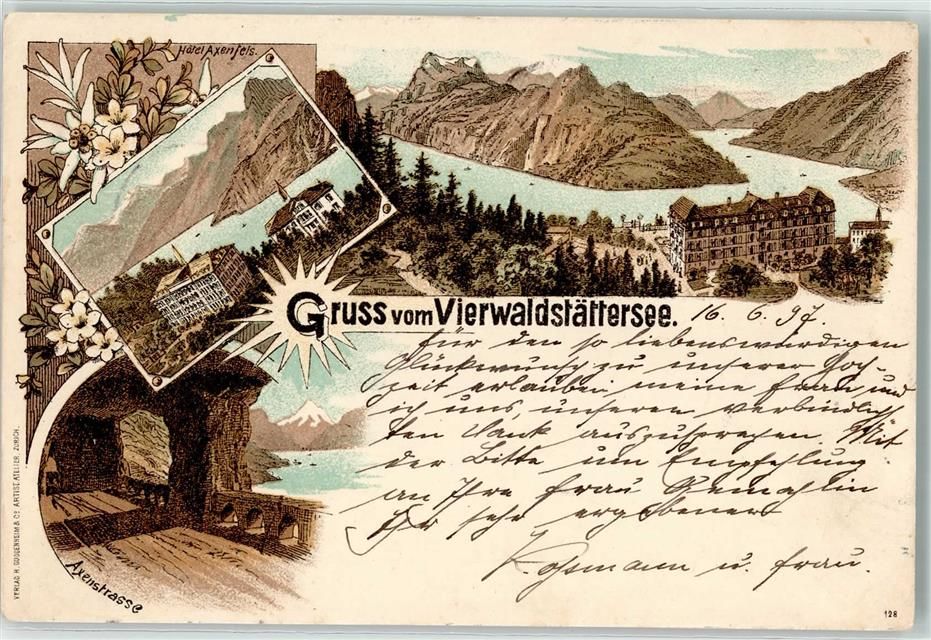 Hôtel Axenfels.
Gruss vom Vierwaldstättersee.
16. 6. 97.
Für den so liebenswürdigen
Glückwunsch zu unserer Hoch-
zeit erlauben meine Frau und
ich uns, unseren verbindlich-
sten Dank auszusprechen. Mit
der Bitte um Empfehlung
an Ihre Frau Gemahlin
Ihr sehr ergebener
u. Frau.
Axenstrasse
VERLAG H. GUGGENHEIM & Co ARTIST. ATELIER, ZÜRICH.
128